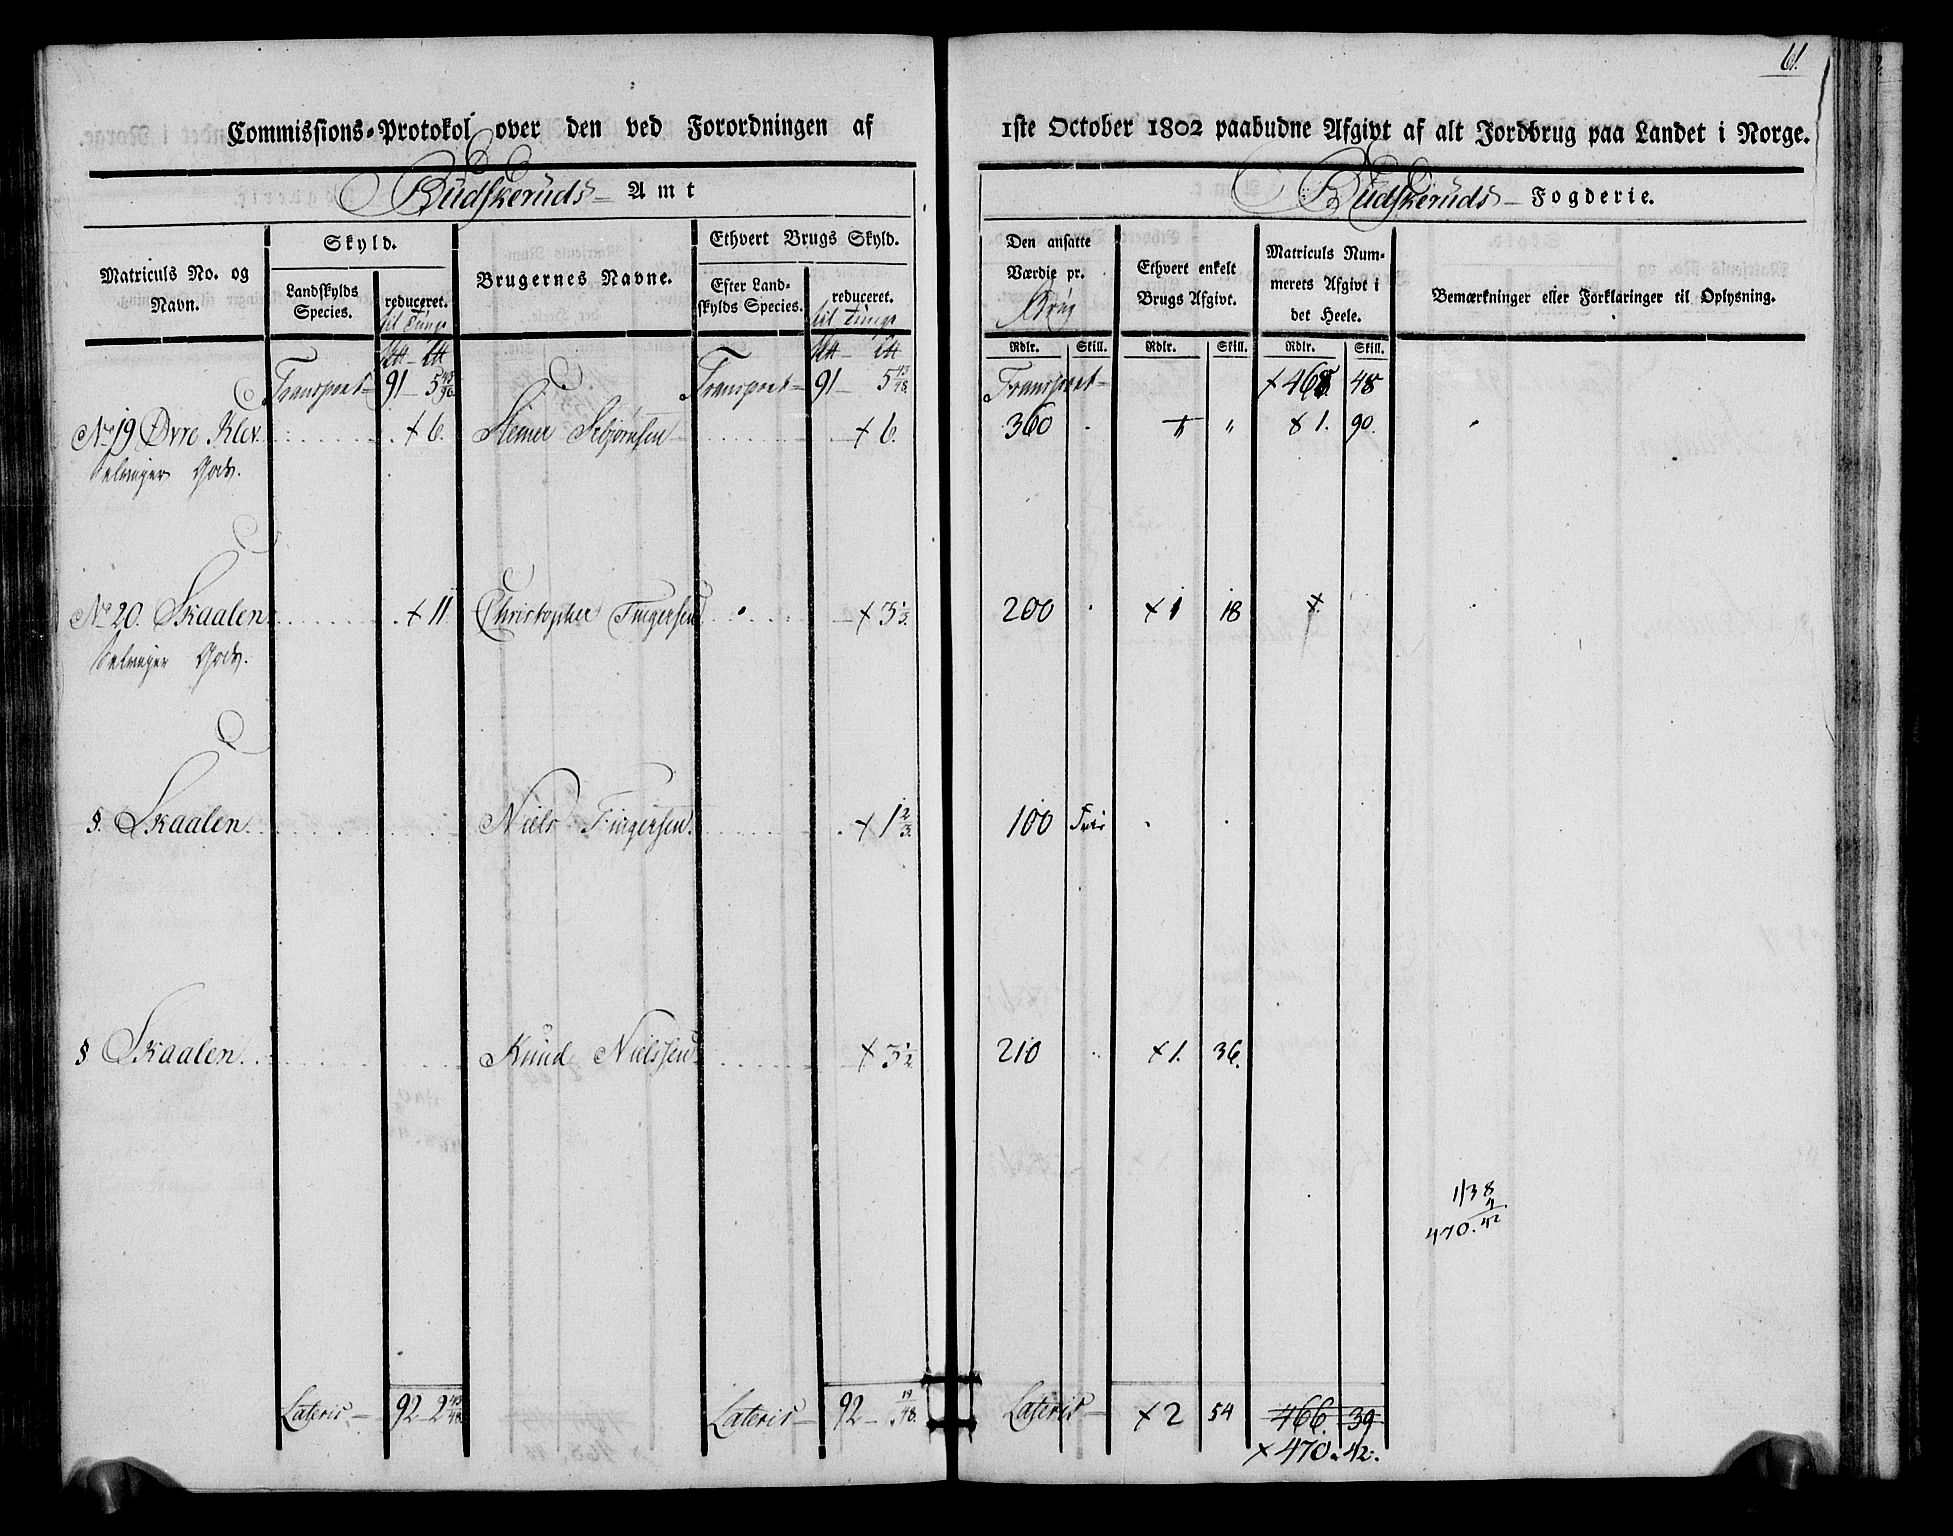 61.
Commissions-Protokol over den ved Forordningen af
Budskeruds Amt
Matriculs No. og Navn.
Skyld.
Landskylds Species.
reduceret.
til Tunge
Brugernes Navne.
Ethvert Brugs Skyld.
Efter Landskylds Species.
reduceret.
til Tunge
Transport — 91 — 5 43/96 Transport — 91 — 5 43/48
No 19 Øvre Klev. + 6. Stener Asbjørnsen + 6.
Selvejer Gods.
No 20. Skaalen + 11 Christopher Tingersen + 3 1/3.
Selvejer Gods.
§. Skaalen. Niels Tingersen. + 1 2/3.
§ Skaalen. Knud Nielssen + 3 1/2.
Lateris — 92 — 2 43/48 Lateris — 92 — 19/48.
1ste October 1802 paabudne Afgivt af alt Jordbrug paa Landet i Norge.
Budskeruds Fogderie.
Den ansatte Værdie pr.
Brug
Ethvert enkelt Brugs Afgivt.
Matriculs Nummerets Afgivt i det Heele.
Bemærkninger eller Forklaringer til Oplysning.
Rdlr. Skill. Rdlr. Skill. Rdlr. Skill.
Transport — + 468 48
360 " + 1. 90.
200 + 1 18 +
100 Frie
210 + 1. 36.
1138
4
470. 42
Lateris — + 2 54 466. 39
+ 470. 42.